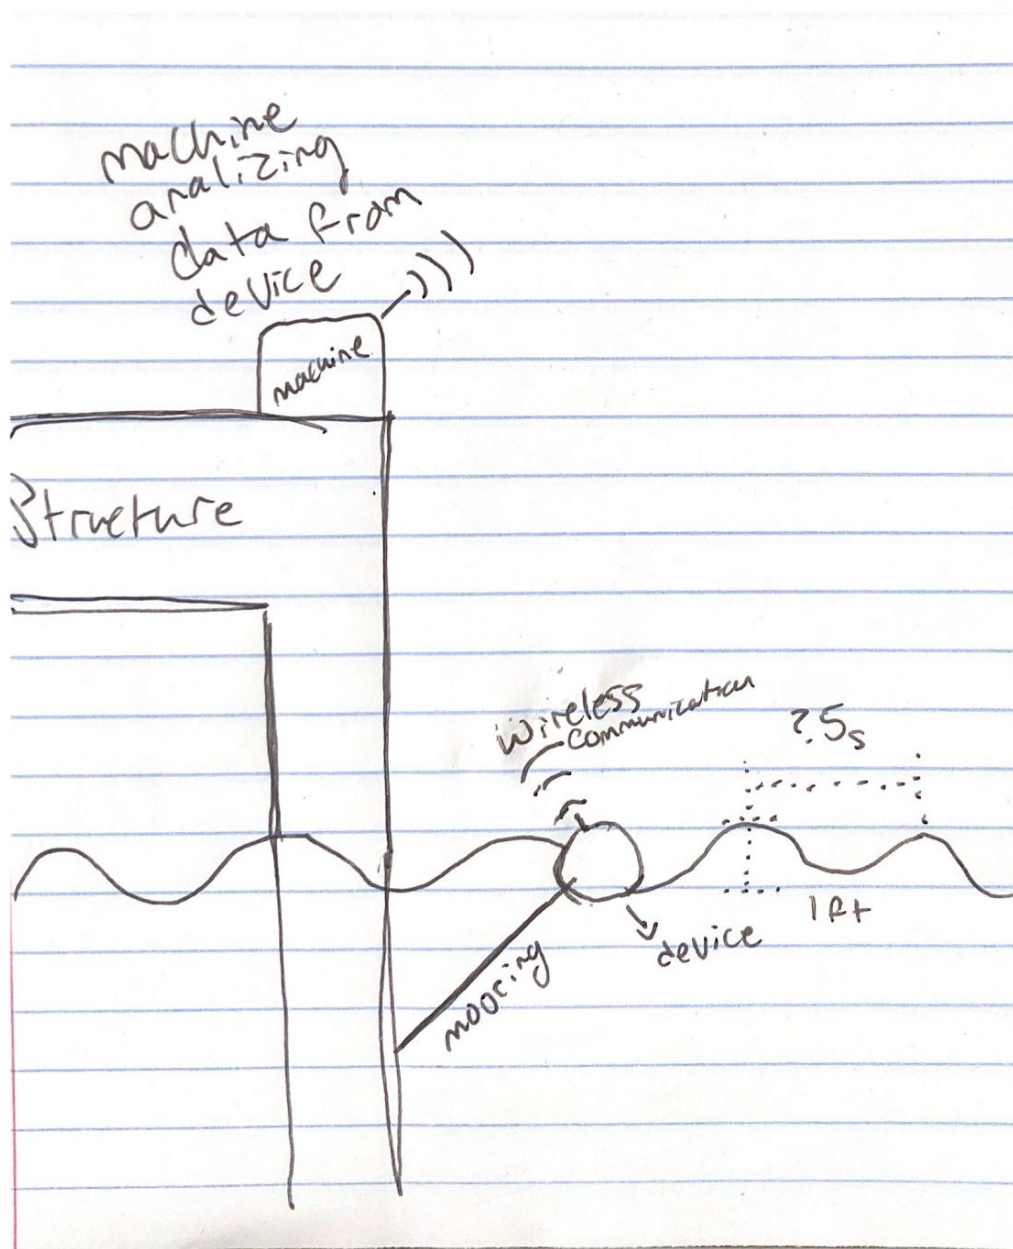 machine
analizing
data from
device
machine
Structure
wireless
communication
?.5s
1ft
device
mooring